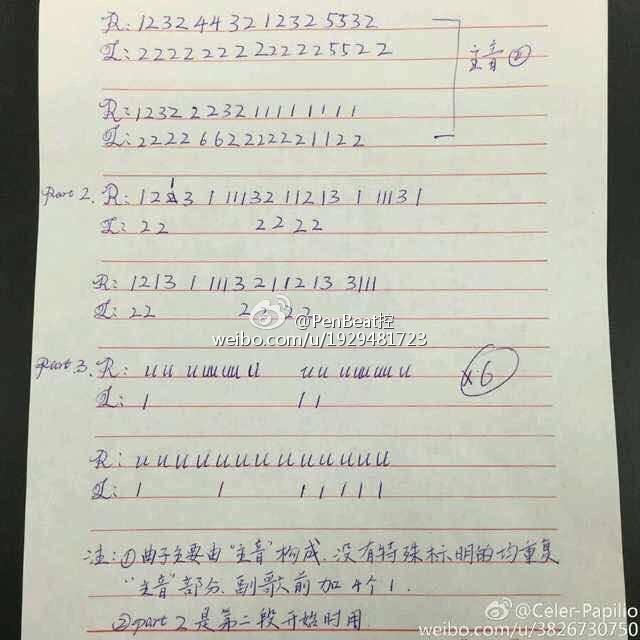 R: 1232 44 32 1 2 3 2 5532
L: 2222 222 2 2222 5522
主音②
R: 1232 2 232 1111 1111
L: 2222 66 2222221122
Part 2. R: 12 1 3 1 111321 1213 1 11131
L: 22 2 2 2 2
R: 1213 1 1113 2 1 1 2 13 3111
L: 22 2 2 2 2
@PenBeat控
weibo.com/u/1929481723
Part 3. R: uu uuuuu u uu uuuuu u
×6
L: 1 1 1
R: uuuuuuuuuuuuuu
L: 1 1 1 1 1 1 1
注: ①曲子主要由“主音”构成.没有特殊标明的均重复
“主音”部分.副歌前加4个1.
②part 2 是第二段开始时用
@Celer-Papilio
weibo.com/u/3826730750